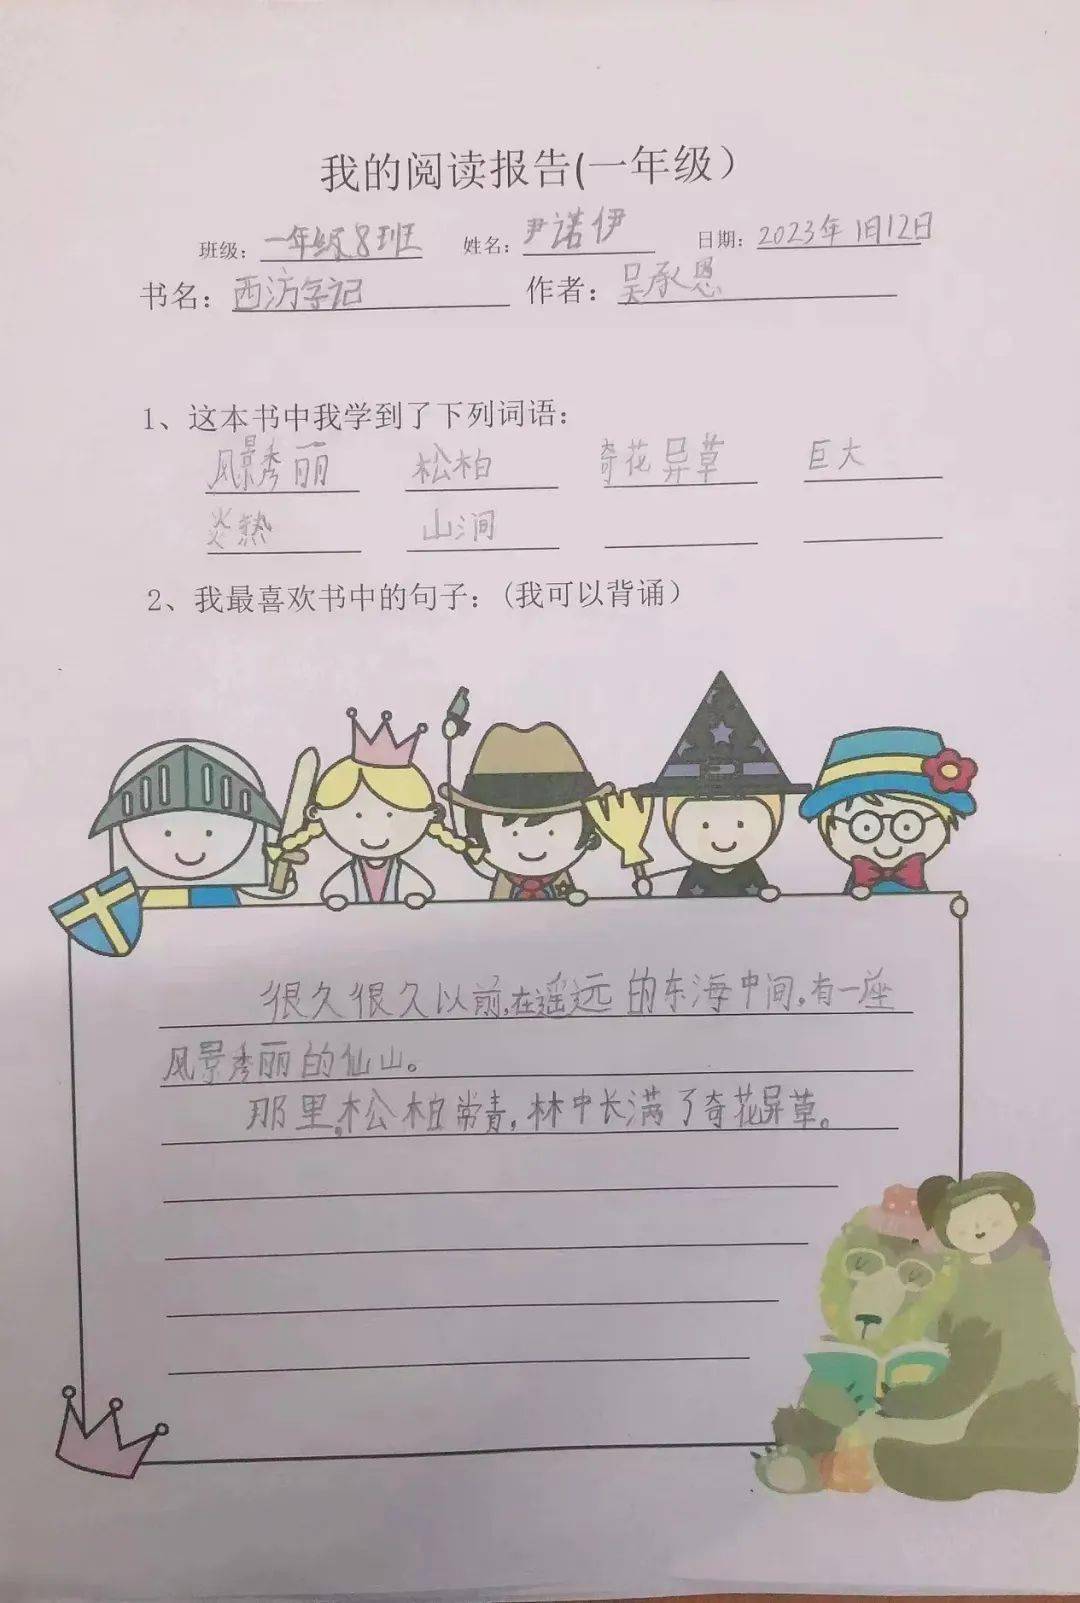 我的阅读报告(一年级）
班级：一年级8班 姓名：尹诺伊 日期：2023年1月12日
书名：西游记 作者：吴承恩
1、这本书中我学到了下列词语：
风景秀丽 松柏 奇花异草 巨大
炎热 山涧
2、我最喜欢书中的句子：（我可以背诵）
很久很久以前,在遥远的东海中间,有一座
风景秀丽的仙山。
那里,松柏常青,林中长满了奇花异草。